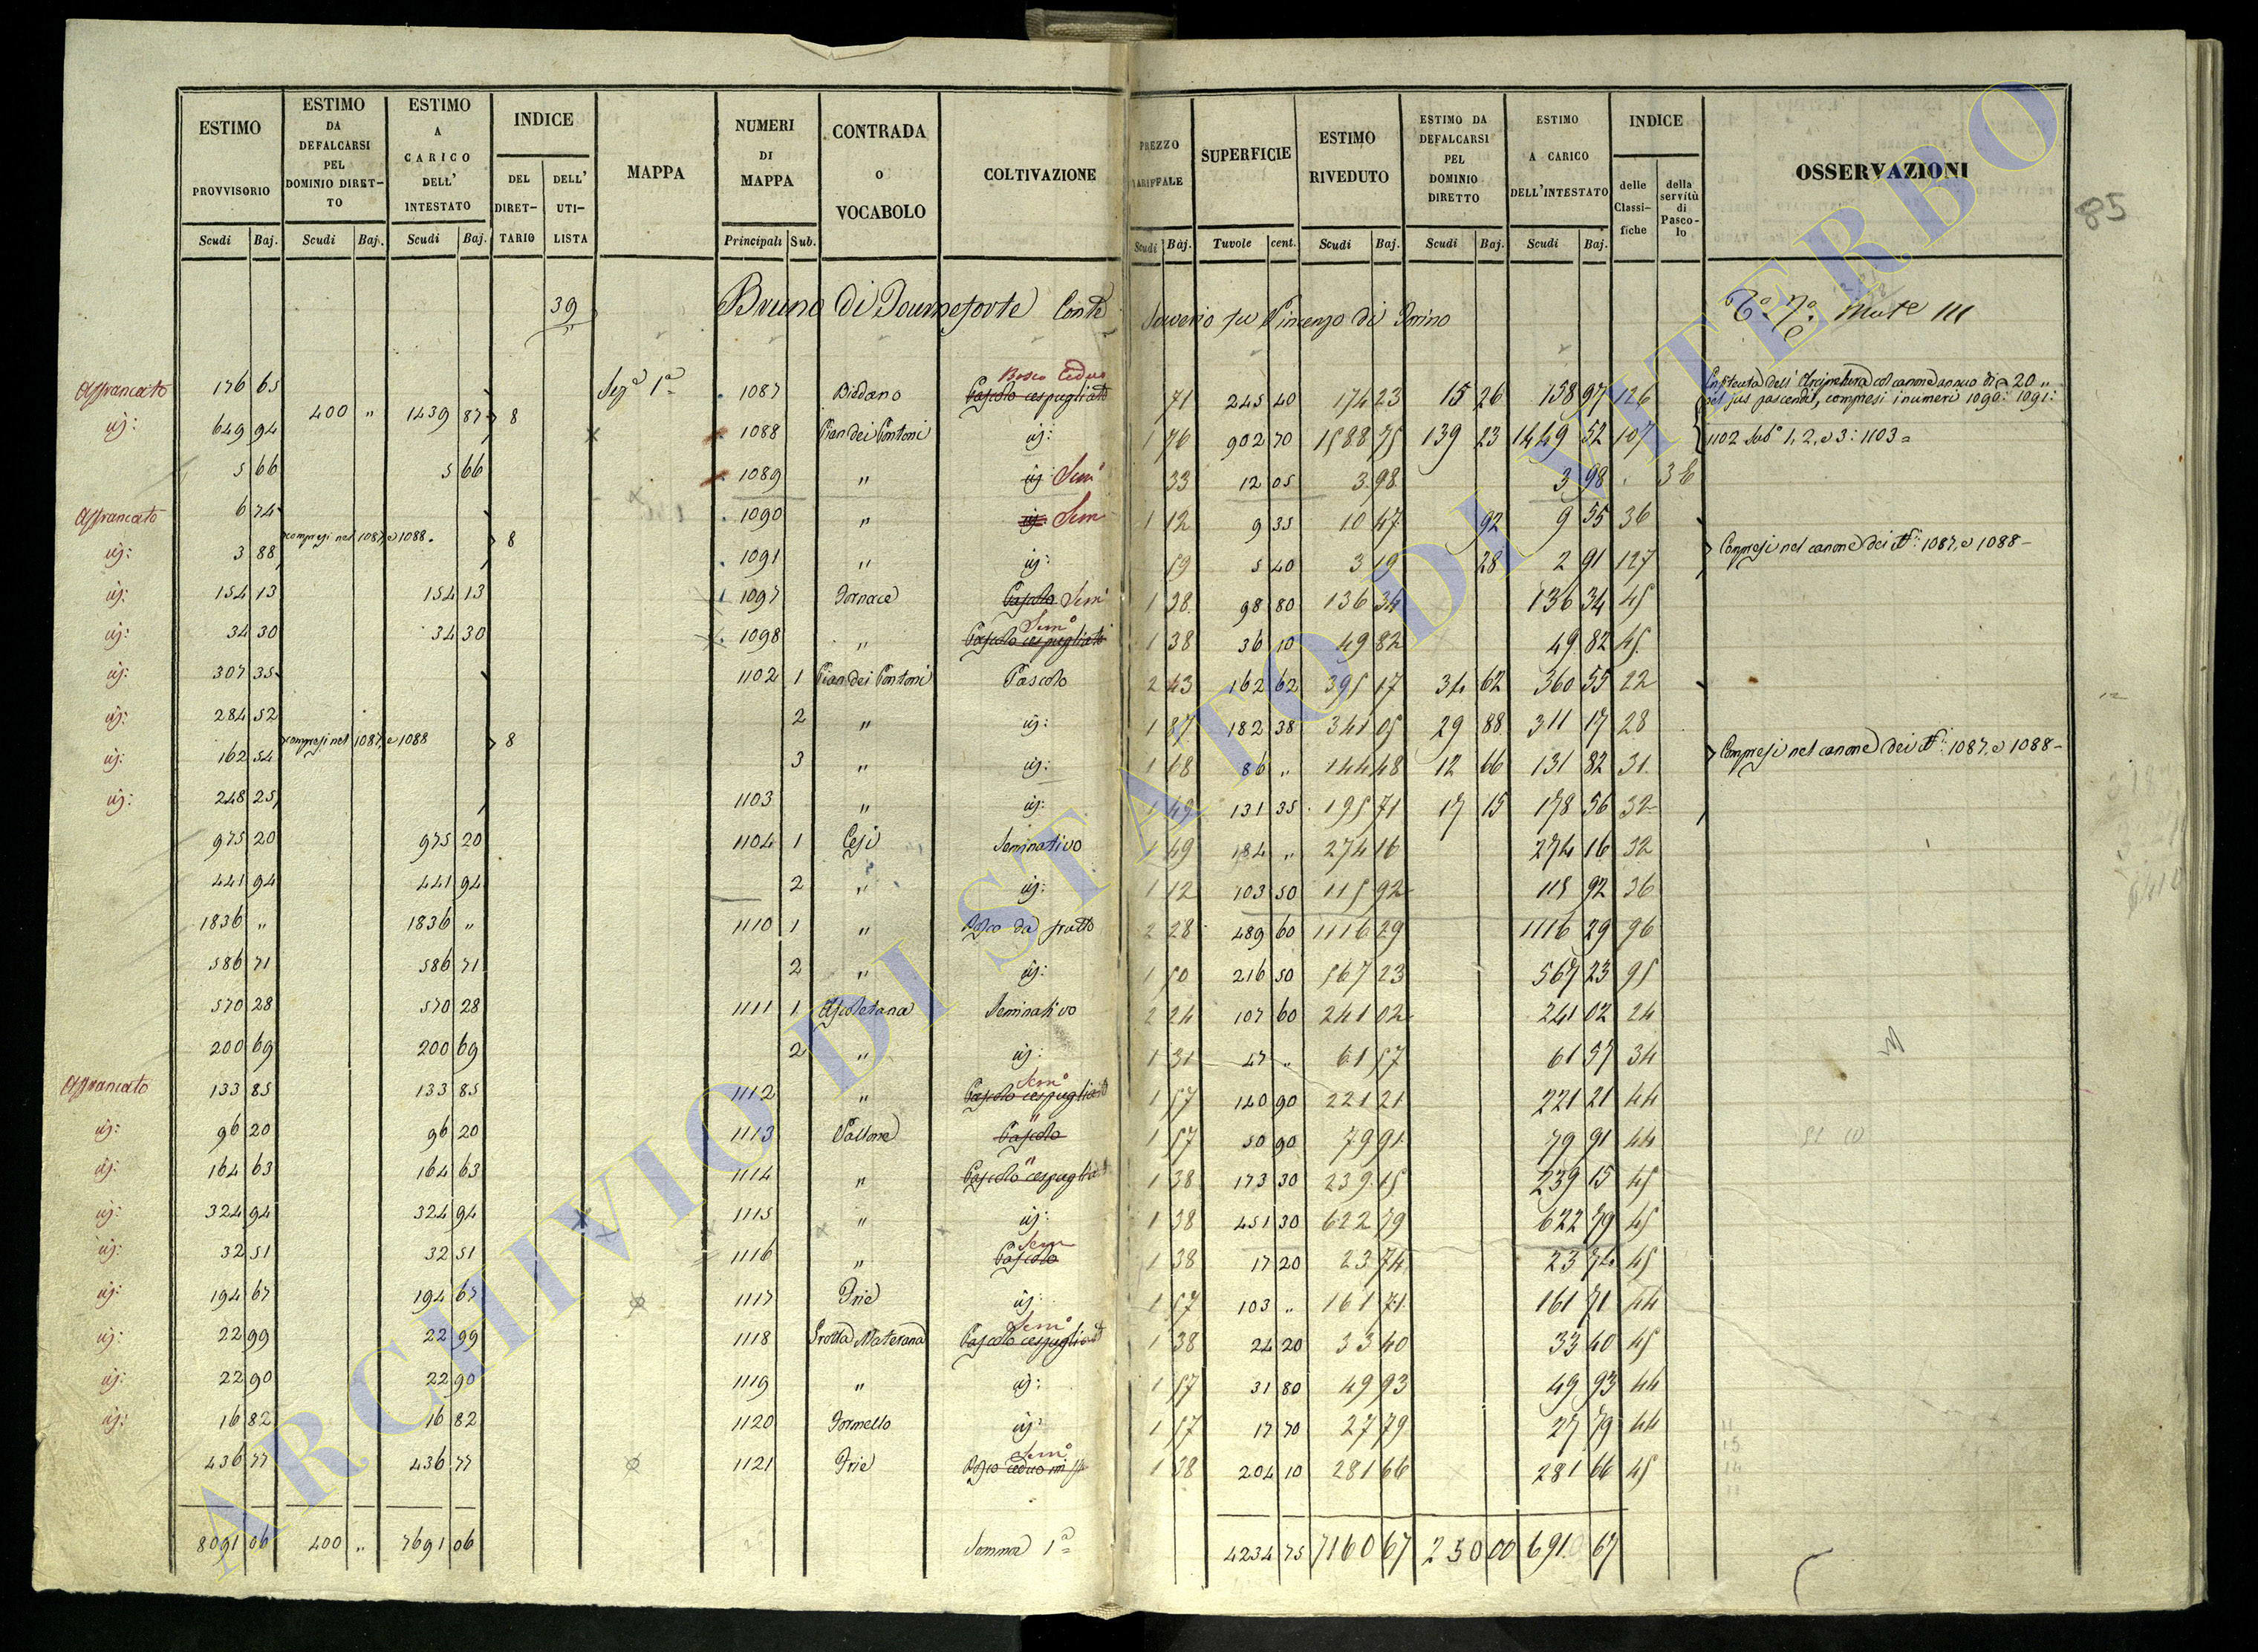 ESTIMO PROVVISORIO Scudi Baj.
ESTIMO DA DEFALCARSI PEL DOMINIO DIRET-TO Scudi Baj.
ESTIMO A CARICO DELL' INTESTATO Scudi Baj.
INDICE DEL DIRET-TARIO DELL' UTI-LISTA
MAPPA
NUMERI DI MAPPA Principali Sub.
CONTRADA o VOCABOLO
COLTIVAZIONE
PREZZO TARIFFALE Scudi Baj.
SUPERFICIE Tavole cent.
ESTIMO RIVEDUTO Scudi Baj.
ESTIMO DA DEFALCARSI PEL DOMINIO DIRETTO Scudi Baj.
ESTIMO A CARICO DELL'INTESTATO Scudi Baj.
INDICE delle Classi-fiche della servitù di Pasco-lo
OSSERVAZIONI
85
39 Bruno di Tourneforte Conte Saverio fu Vincenzo di Torino
Affrancato 176 65 Sez.e 1a 1087 Biedano Pascolo cespugliato Bosco Ceduo 71 245 40 174 23 15 26 158 97 126 Enfiteuta dell' col canone annuo di 20 "
id: 649 94 400 " 1439 87 8 1088 Pian dei Pontoni id: 1 76 902 70 1588 75 139 23 1449 52 107 jus pascendi, compresi i numeri 1090: 1091:
1102 Sub° 1, 2, e 3: 1103 =
5 66 5 66 1089 " id Sem° 33 12 05 3 98 3 98
Affrancato 6 74 1090 " id: Sem 1 12 9 35 10 47 92 9 55 36
compresi nel 1087, e 1088. 8 Compresi nel canone dei N.i 1087, e 1088 -
id: 3 88 1091 " id: 59 5 40 3 19 28 2 91 127
id: 154 13 154 13 1097 Fornace Pascolo Sem° 1 38 98 80 136 34 136 34 45
id: 34 30 34 30 1098 " Pascolo cespugliato Sem° 1 38 36 10 49 82 49 82 45
id: 307 35 1102 1 Pian dei Pontoni Pascolo 2 43 162 62 395 17 34 62 360 55 22
id: 284 52 2 " id: 1 87 182 38 341 05 29 88 311 17 28
compresi nel 1087, e 1088 8 Compresi nel canone dei N.i 1087, e 1088 -
id: 162 54 3 " id: 1 18 86 " 144 48 12 66 131 82 31
id: 248 25 1103 " id: 1 49 131 35 195 71 17 15 178 56 32
975 20 975 20 1104 1 Cesi Seminativo 1 49 184 " 274 16 274 16 32
441 94 441 94 2 " id: 1 12 103 50 115 92 115 92 36
1836 " 1836 " 1110 1 " Bosco da frutto 2 28 489 60 1116 29 1116 29 96
586 71 586 71 2 " id: 1 50 216 50 567 23 567 23 95
570 28 570 28 1111 1 Seminativo 2 24 107 60 241 02 241 02 24
200 69 200 69 2 " id: 1 31 47 " 61 57 61 57 34
Affrancato 133 85 133 85 1112 " Pascolo cespugliato Sem° 1 57 140 90 221 21 221 21 44
id: 96 20 96 20 1113 Vallone Pascolo " 1 57 50 90 79 91 79 91 44
id: 164 63 164 63 1114 " Pascolo cespugliato " 1 38 173 30 239 15 239 15 45
id: 324 94 324 94 1115 " id: 1 38 451 30 622 79 622 79 45
id: 32 51 32 51 1116 " Pascolo Sem 1 38 17 20 23 74 23 74 45
id: 194 67 194 67 1117 Trie id: 1 57 103 " 161 71 161 71 44
id: 22 99 22 99 1118 Grotta Materana Pascolo cespugliato Sem° 1 38 24 20 33 40 33 40 45
id: 22 90 22 90 1119 " id: 1 57 31 80 49 93 49 93 44
id: 16 82 16 82 1120 Formello id: 1 57 17 70 27 79 27 79 44
436 77 436 77 1121 Trie Bosco ceduo Sem° 1 38 204 10 281 66 281 66 45
8091 06 400 " 7691 06 Somma 1a 4234 75 7160 67 250 00 6910 67
ARCHIVIO DI STATO DI VITERBO